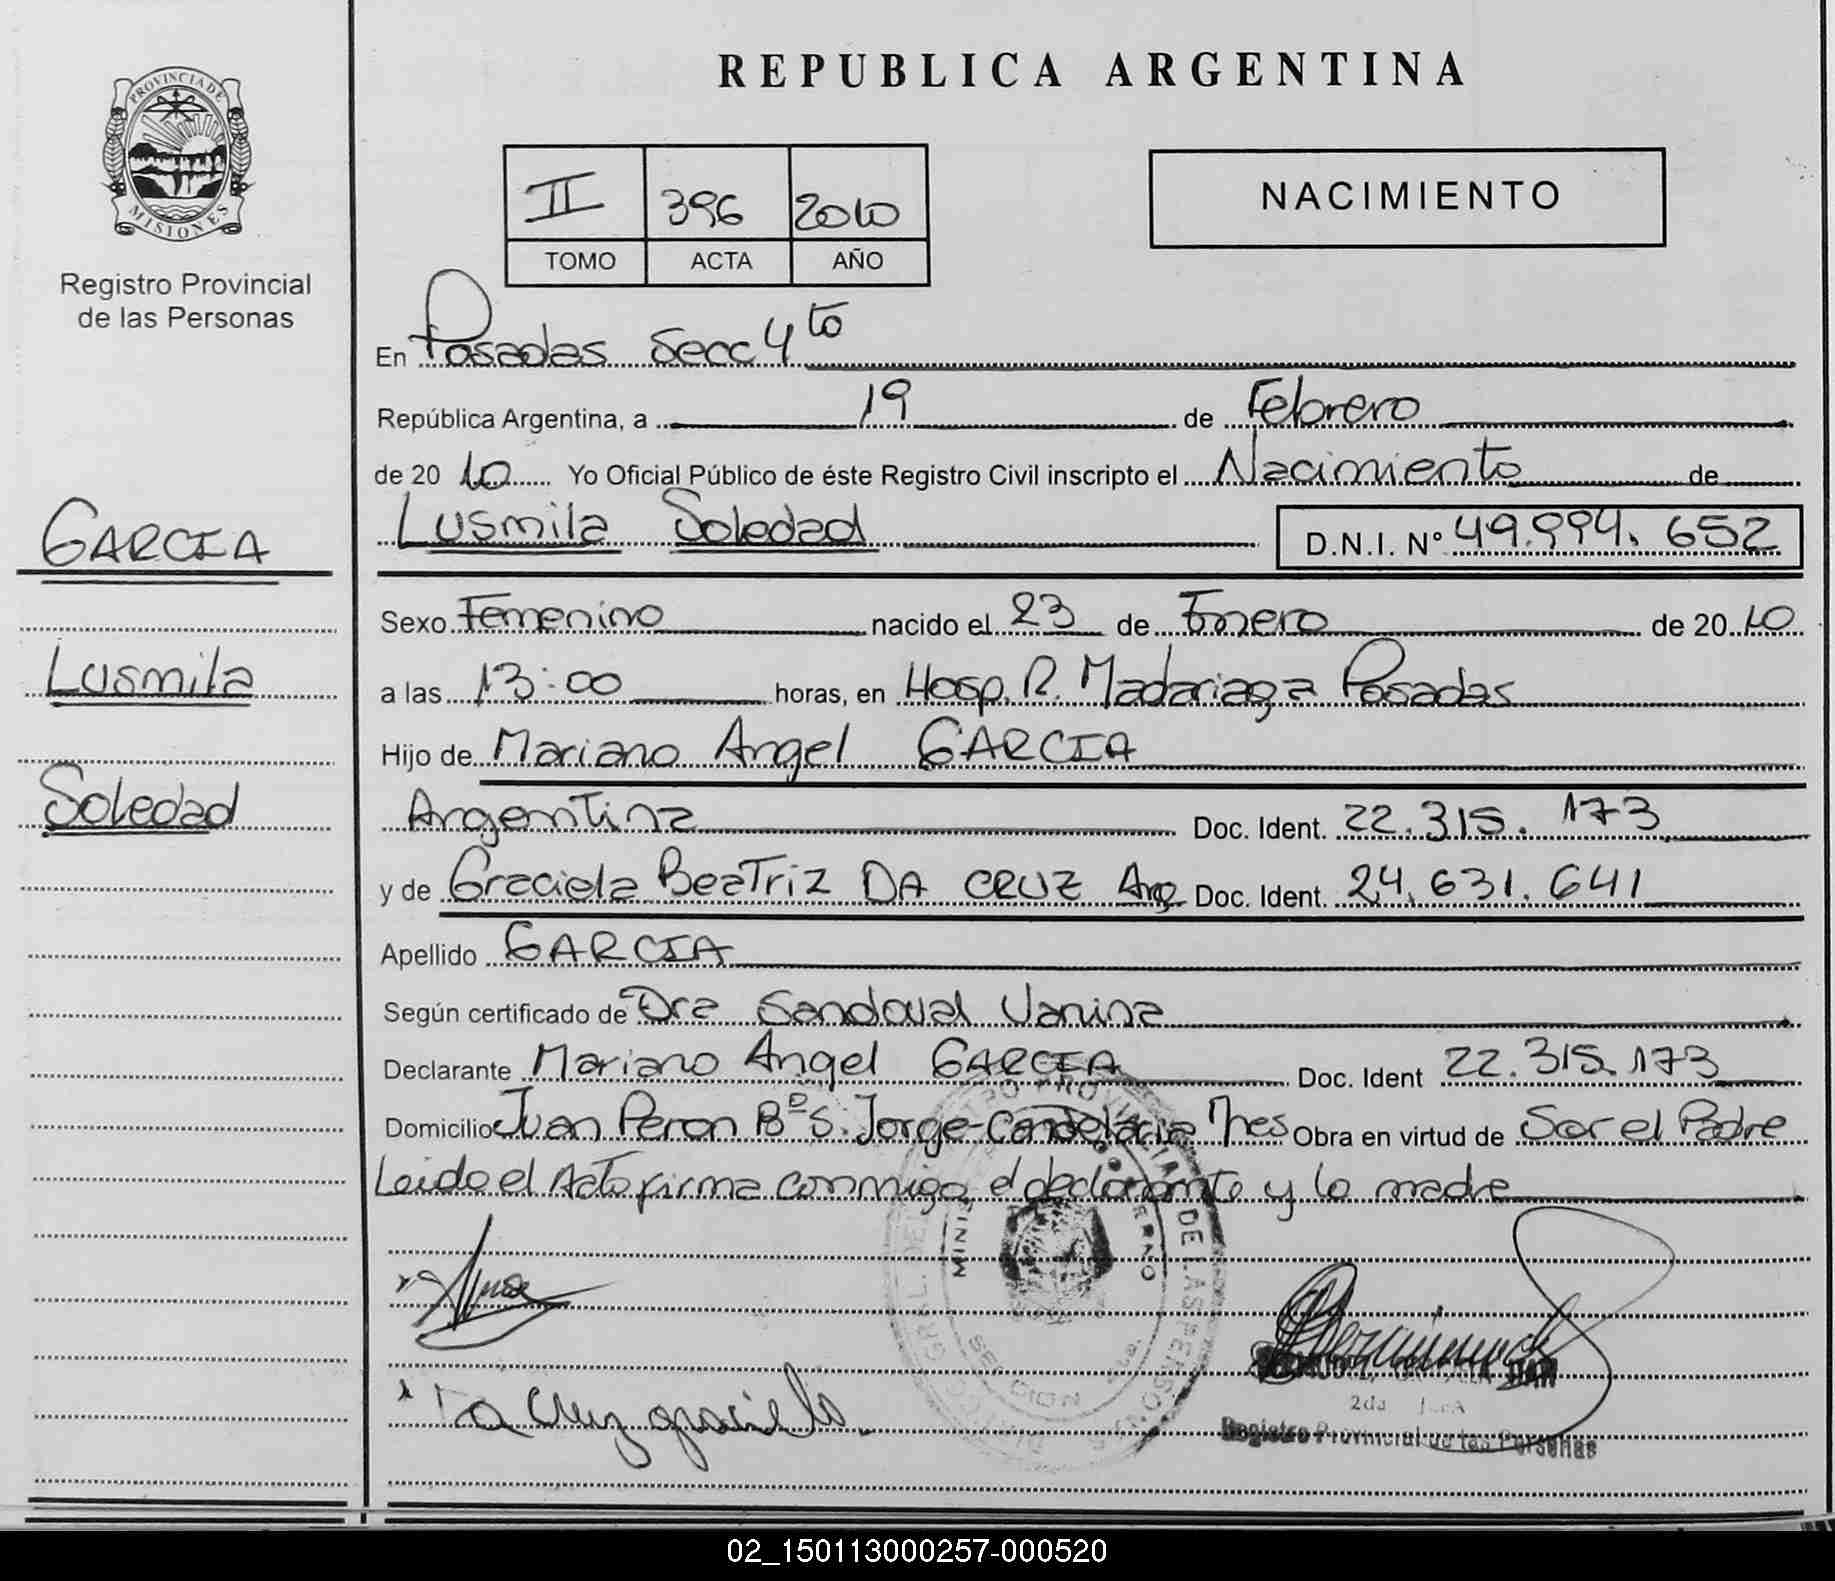 REPUBLICA ARGENTINA
PROVINCIA DE
MISIONES
Registro Provincial
de las Personas
II 396 2010
TOMO ACTA AÑO
NACIMIENTO
En Posadas Secc 4to
República Argentina, a 19 de Febrero
de 20 10 Yo Oficial Público de éste Registro Civil inscripto el Nacimiento de
Lusmila Soledad D.N.I. Nº 49.994.652
GARCIA
Lusmila
Soledad
Sexo Femenino nacido el 23 de Enero de 20 10
a las 13:00 horas, en Hosp. R. Madariaga Posadas
Hijo de Mariano Angel GARCIA
Argentina Doc. Ident. 22.315.173
y de Graciela Beatriz DA CRUZ Arg Doc. Ident. 24.631.641
Apellido GARCIA
Según certificado de Dra Sandoval Vanina
Declarante Mariano Angel GARCIA Doc. Ident 22.315.173
Domicilio Juan Peron Bº S. Jorge-Candelaria Mnes Obra en virtud de Ser el Padre
Leido el Acta firma conmigo el declarante y la madre
Da Cruz graciela
Registro Provincial de las Personas
02_150113000257-000520